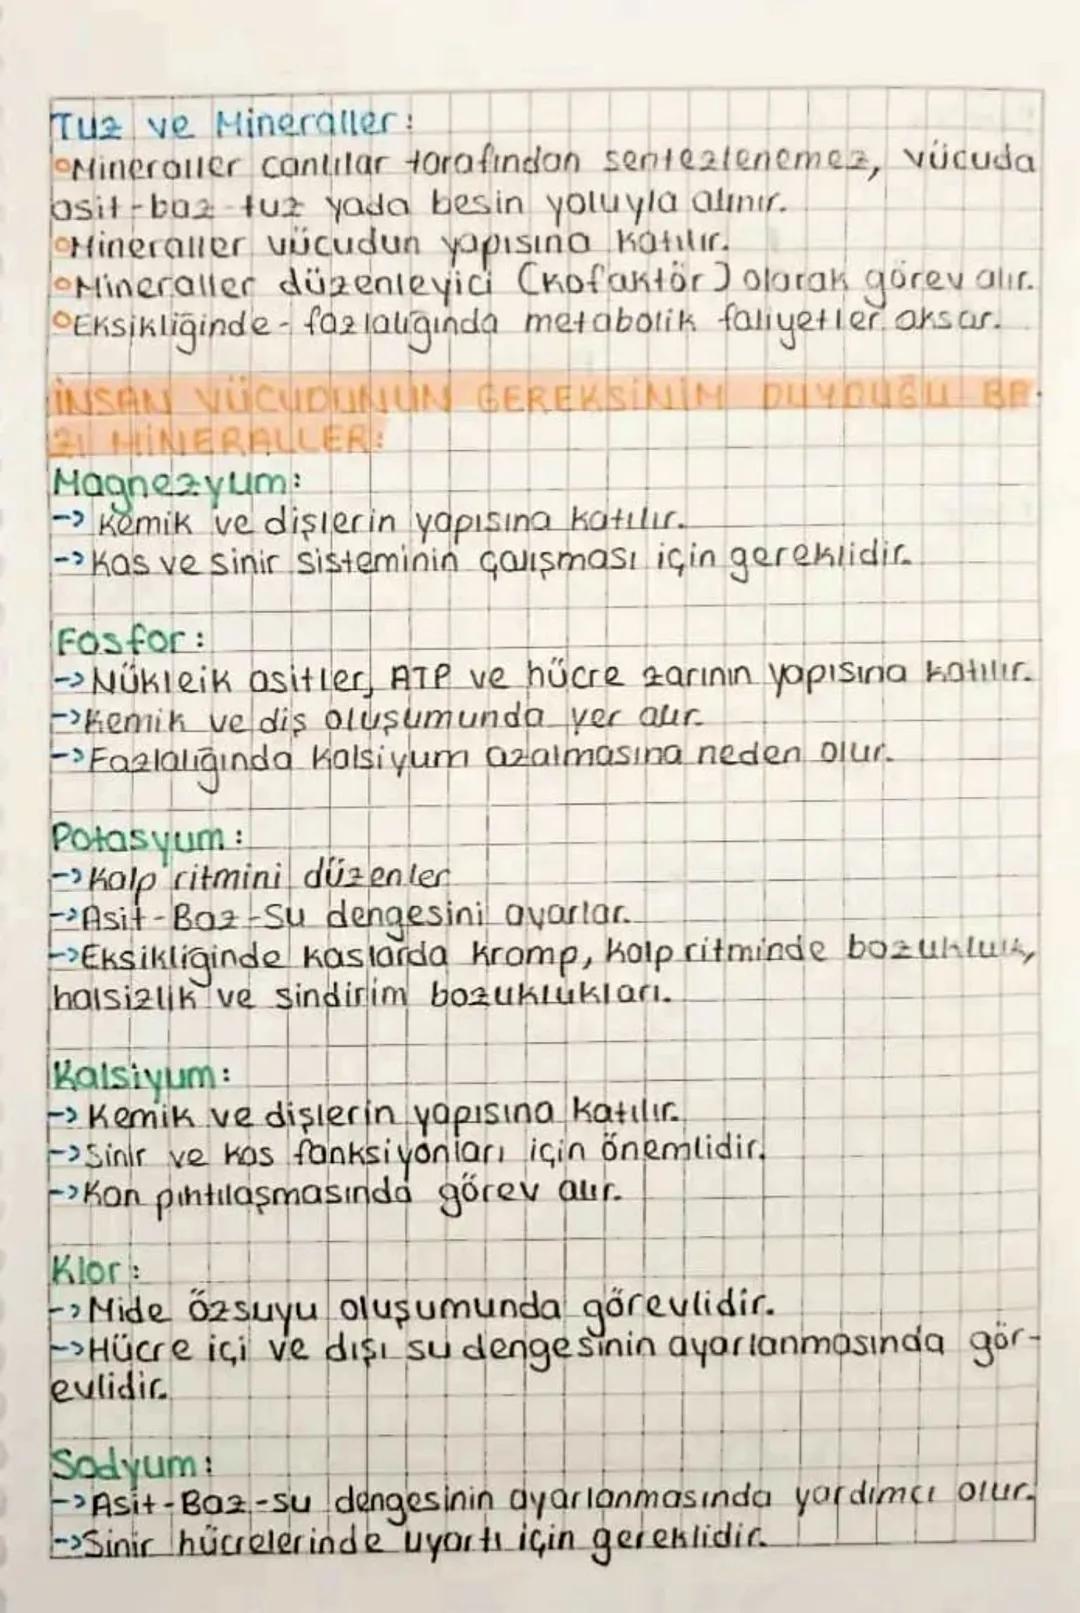 Tuz ve Mineraller:
°Mineraller canlılar tarafından sentezlenemez, vücuda
asit-baz-tuz yada besin yoluyla alınır.
°Mineraller vücudun yapısına katılır.
°Mineraller düzenleyici (kofaktör) olarak görev alır.
°Eksikliğinde - fazlalığında metabolik faliyetler aksar.
İNSAN VÜCUDUNUN GEREKSİNİM DUYDUĞU BA-
ZI MİNERALLER:
Magnezyum:
-> Kemik ve dişlerin yapısına katılır.
-> Kas ve sinir sisteminin çalışması için gereklidir.
Fosfor:
-> Nükleik asitler, ATP ve hücre zarının yapısına katılır.
-> Kemik ve diş oluşumunda yer alır.
-> Fazlalığında kalsiyum azalmasına neden olur.
Potasyum:
-> Kalp ritmini düzenler
-> Asit-Baz-Su dengesini ayarlar.
-> Eksikliğinde kaslarda kramp, kalp ritminde bozukluk,
halsizlik ve sindirim bozuklukları.
Kalsiyum:
-> Kemik ve dişlerin yapısına katılır.
-> Sinir ve kas fonksiyonları için önemlidir.
-> Kan pıhtılaşmasında görev alır.
Klor:
-> Mide özsuyu oluşumunda görevlidir.
-> Hücre içi ve dışı su dengesinin ayarlanmasında gör-
evlidir.
Sodyum:
-> Asit-Baz-su dengesinin ayarlanmasında yardımcı olur.
-> Sinir hücrelerinde uyartı için gereklidir.